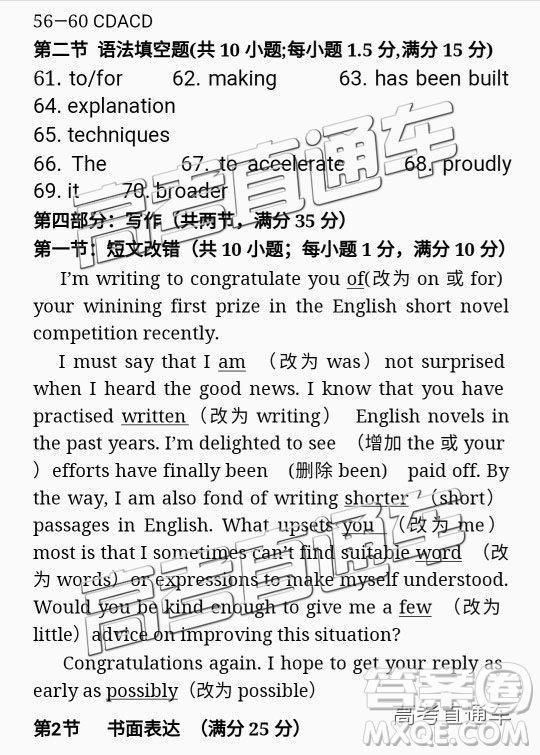 56—60 CDACD
第二节 语法填空题(共 10 小题;每小题 1.5 分,满分 15 分)
61. to/for 62. making 63. has been built
64. explanation
65. techniques
66. The 67. to accelerate 68. proudly
69. it 70. broader
第四部分：写作（共两节，满分 35 分）
第一节：短文改错（共 10 小题；每小题 1 分，满分 10 分）
I'm writing to congratulate you of(改为 on 或 for)
your winining first prize in the English short novel
competition recently.
I must say that I am （改为 was）not surprised
when I heard the good news. I know that you have
practised written（改为 writing） English novels in
the past years. I'm delighted to see （增加 the 或 your
）efforts have finally been (删除 been) paid off. By
the way, I am also fond of writing shorter （short）
passages in English. What upsets you （改为 me）
most is that I sometimes can't find suitable word （改
为 words）or expressions to make myself understood.
Would you be kind enough to give me a few （改为
little）advice on improving this situation?
Congratulations again. I hope to get your reply as
early as possibly（改为 possible）
第2节 书面表达 （满分 25 分）
高考直通车
高考直通车
高考直通车
答案圈
MXQE.COM